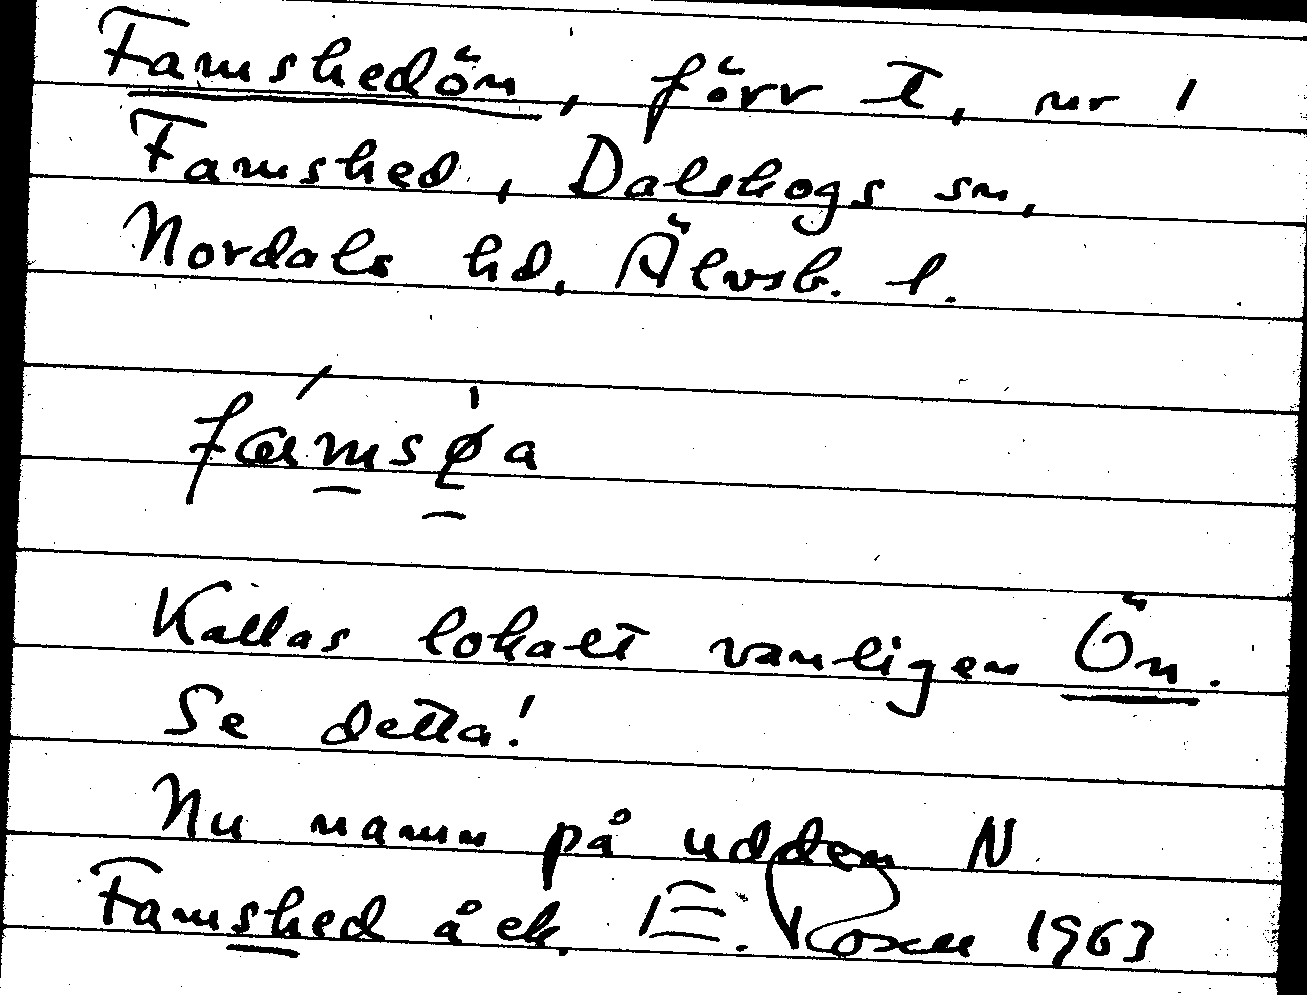 Famshedön, förr T, nr 1
Famshed, Dalskogs sn,
Nordals hd, Älvsb. l.
Kallas lokalt vanligen Ön.
Se detta!
Nu namn på udden N
Famshed å ek. E. Rosell 1963